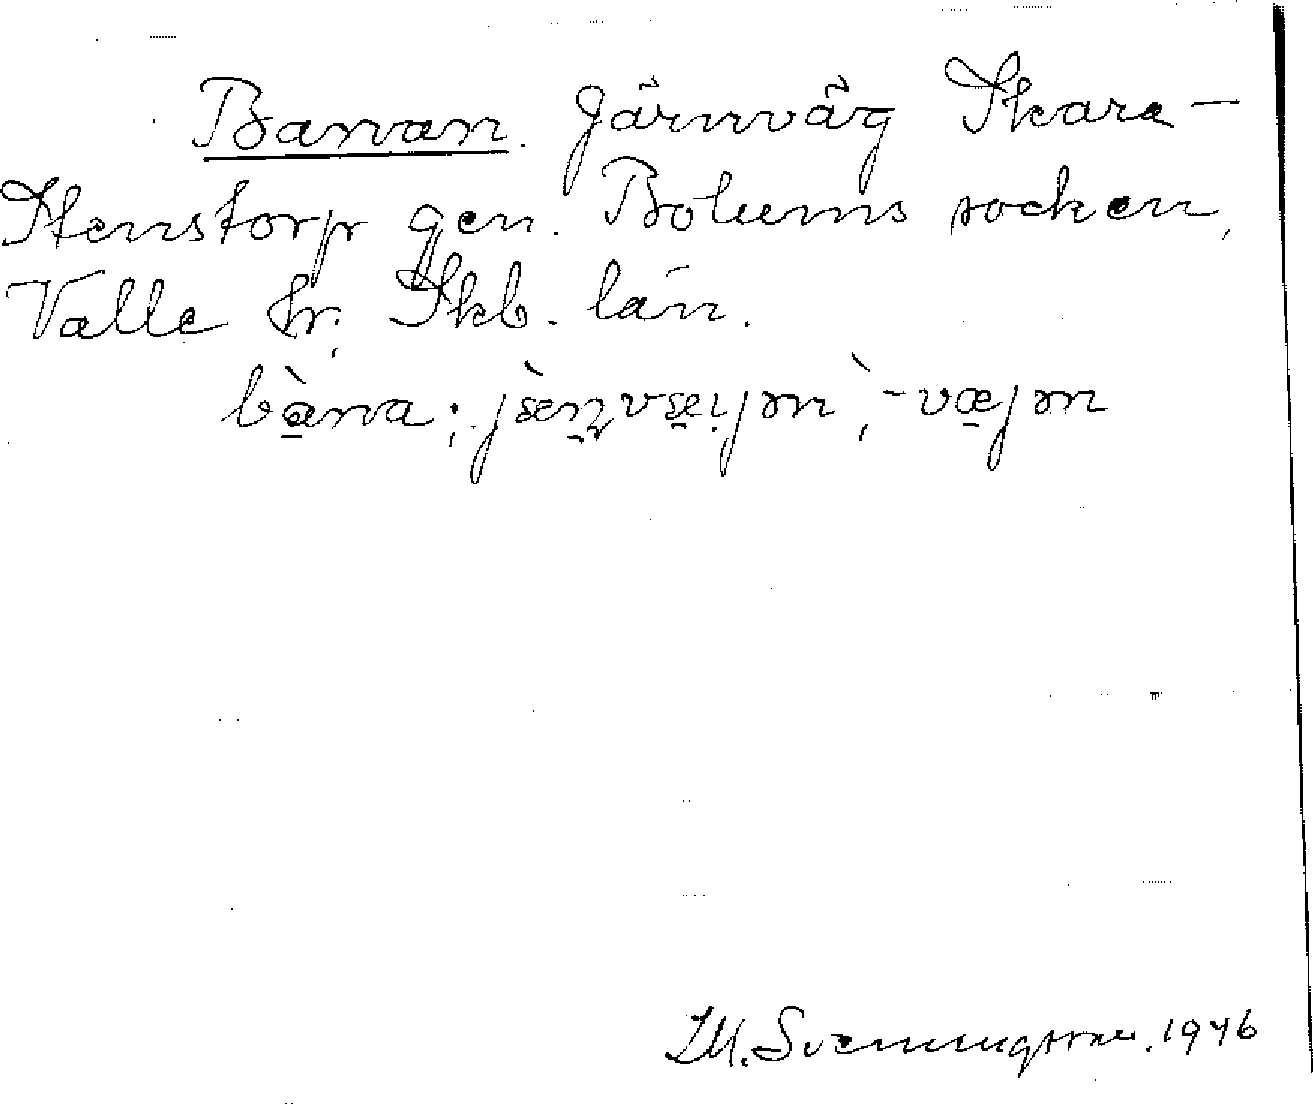 Banan. Järnväg Skara –
Stenstorp gen. Bolums socken,
Valle hr, Skb. län.
bàna; jæ̀ɳvæjən, -væjən
H. Svenningsson. 1946